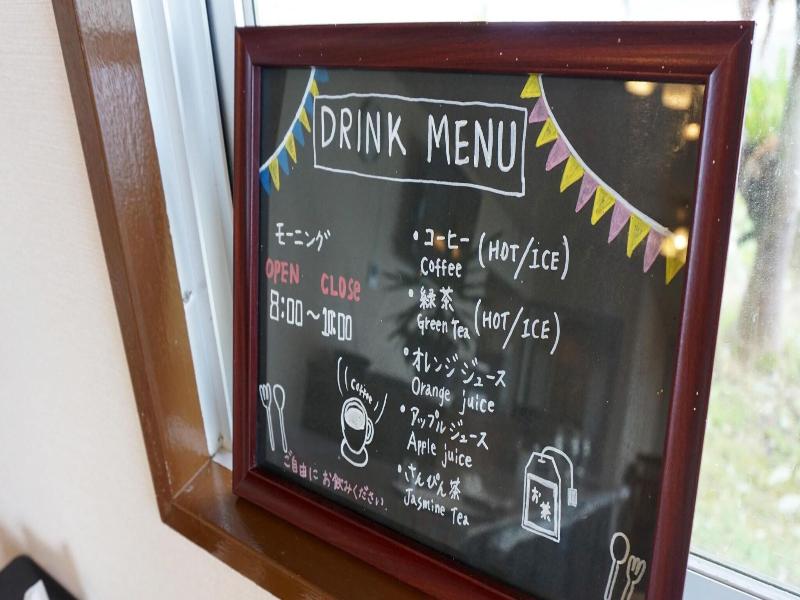 DRINK MENU
モーニング
OPEN CLOSE
8:00～
・コーヒー (HOT/ICE)
Coffee
・緑茶 (HOT/ICE)
Green Tea
・オレンジジュース
Orange juice
・アップルジュース
Apple juice
・さんぴん茶
Jasmine Tea
Coffee
ご自由にお飲みください
お茶